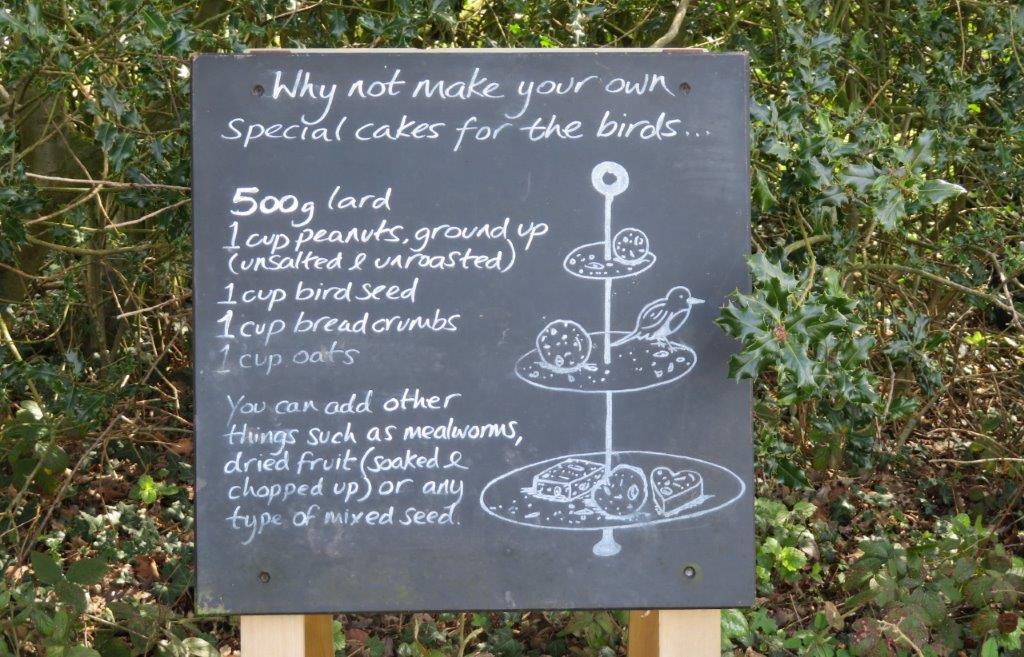 Why not make your own
special cakes for the birds...
500g lard
1 cup peanuts, ground up
(unsalted & unroasted)
1 cup bird seed
1 cup breadcrumbs
1 cup oats
You can add other
things such as mealworms,
dried fruit (soaked &
chopped up) or any
type of mixed seed.